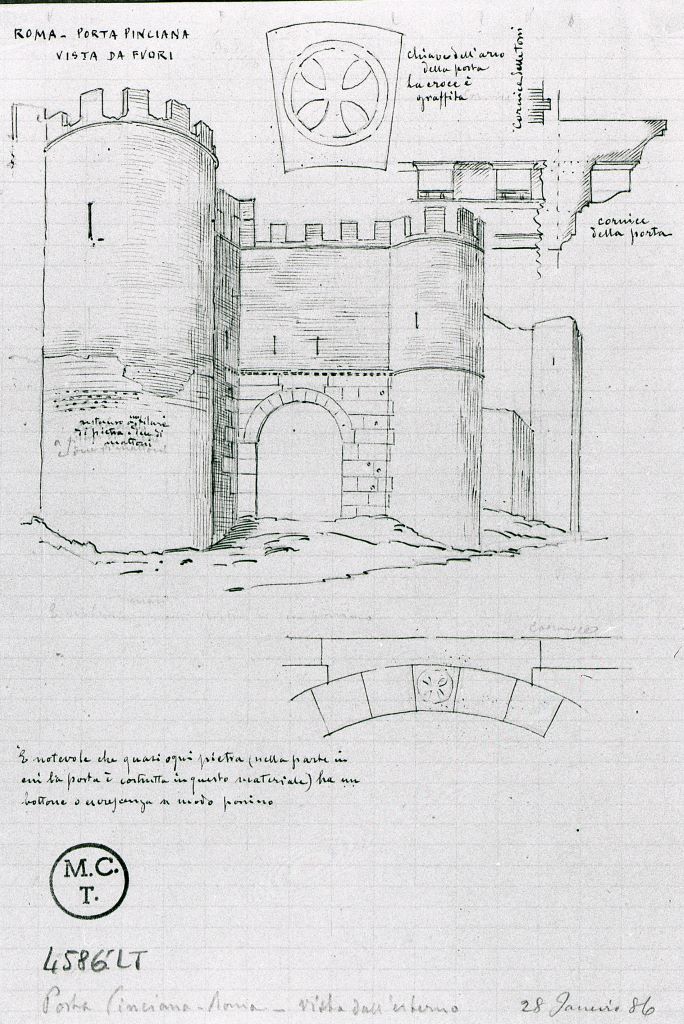 ROMA - PORTA PINCIANA
VISTA DA FVORI
chiave dell'arco
della porta
La croce è
graffita
cornice delle Toni
cornice
della porta
restauro
di pietra e di
mattoni
cornice
È notevole che quasi ogni pietra (nella parte in
cui la porta è costrutta in questo materiale) ha un
bottone o escrescenza a modo
M.C.
T.
4586 LT
Porta Pinciana - Roma - vista dall'esterno
28 86